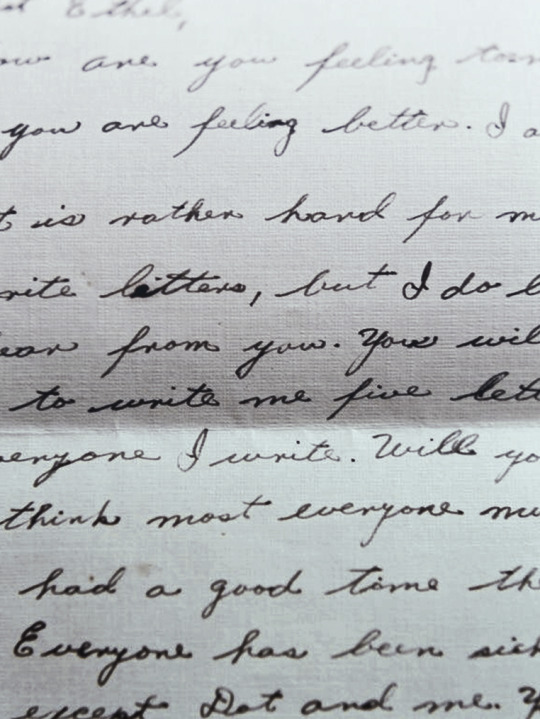 Ethel,
are you feeling
you are feeling better. I
is rather hard for
letters, but I do
from you. You
to write me five
everyone I write. Will
think most everyone
had a good time
Everyone has been sick
except Dot and me.